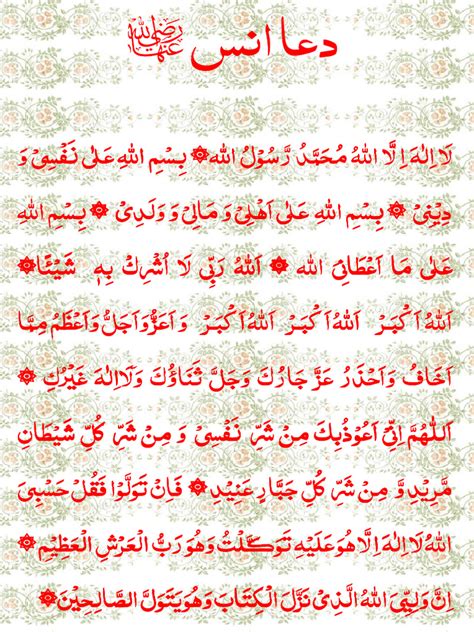 دعا انس رضی اللہ عنہا
لَا اِلٰهَ اِلَّا اللهُ مُحَمَّدٌ رَّسُوْلُ اللهِ ۞ بِسْمِ اللهِ عَلٰى نَفْسِیْ وَ
دِیْنِیْ ۞ بِسْمِ اللهِ عَلٰى اَهْلِیْ وَ مَالِیْ وَ وَلَدِیْ ۞ بِسْمِ اللهِ
عَلٰى مَا اَعْطَانِیَ الله ۞ اَللهُ رَبِّی لَا اُشْرِكُ بِهٖ شَیْئًا ۞
اَللهُ اَكْبَرُ اَللهُ اَكْبَرُ اَللهُ اَكْبَرُ وَ اَعَزُّ وَاَجَلُّ وَاَعْظَمُ مِمَّا
اَخَافُ وَاَحْذَرُ عَزَّ جَارُكَ وَجَلَّ ثَنَاؤُكَ وَلَااِلٰهَ غَیْرُكَ ۞
اَللّٰهُمَّ اِنِّیْ اَعُوْذُبِكَ مِنْ شَرِّ نَفْسِیْ وَ مِنْ شَرِّ كُلِّ شَیْطَانِ
مَّرِیْدٍ وَّ مِنْ شَرِّ كُلِّ جَبَّارٍ عَنِیْدٍ ۞ فَاِنْ تَوَلَّوْا فَقُلْ حَسْبِیَ
اللهُ لَا اِلٰهَ اِلَّا هُوَ عَلَیْهِ تَوَكَّلْتُ وَهُوَ رَبُّ الْعَرْشِ الْعَظِیْمِ ۞
اِنَّ وَلِیِّیَ اللهُ الَّذِیْ نَزَّلَ الْكِتَابَ وَهُوَ یَتَوَلَّ الصَّالِحِیْنَ ۞